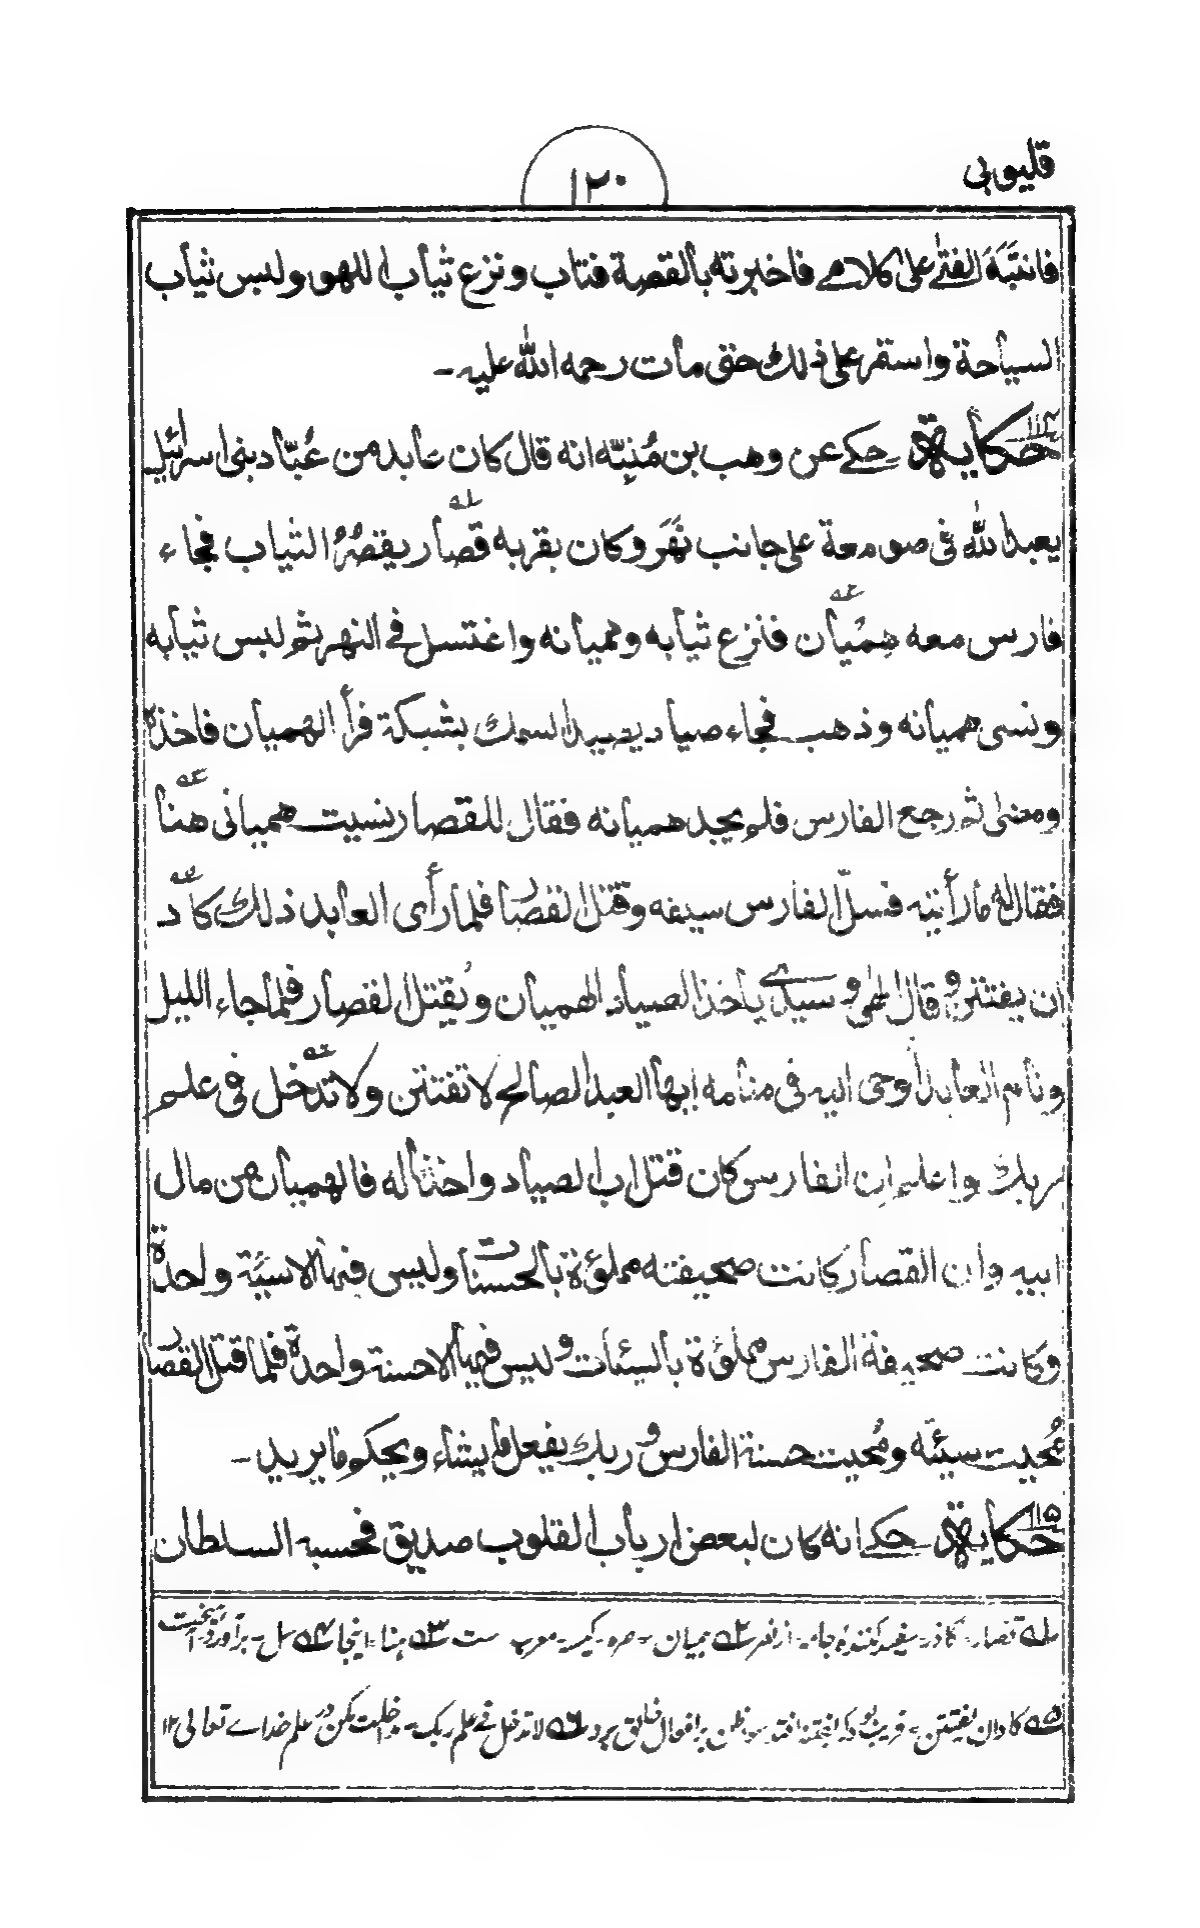 قليوبى
١٢٠
فانتبَهَ الفتى على كلامى فاخبرته بالقصة فتاب ونزع ثياب اللهو ولبس ثياب
السياحة واستمر على ذلك حتى مات رحمه الله عليه ـ
حكاية ١١٤ حكى عن وهب بن مُنبِّه انه قال كان عابد من عُبّاد بنى اسرائيل
يعبد الله فى صومعة على جانب نَهَر وكان بقربه قصار يقصُرُ الثياب فجاء
فارس معه هِميُان فنزع ثيابه وهميانه واغتسل فى النهر ثم لبس ثيابه
ونسى هميانه وذهب فجاء صياد يصيد السمك بشبكة فرأ الهميان فاخذه
ومضى ثم رجع الفارس فلم يجد هميانه فقال للقصار نسيت هميانى هنا
فقال له ما رأيته فسلّ الفارس سيفه وقتل القصار فلما رأى العابد ذلك كاد
ان يفتتن وقال الهى وسيدى ياخذ الصياد الهميان ويُقتل القصار فلما جاء الليل
ونام العابد أوحى اليه فى منامه ايها العبد الصالح لا تفتتن ولا تدخل فى علم
ربك واعلم ان الفارس كان قتل اب الصياد واخذ ماله فالهميان من مال
ابيه وان القصار كانت صحيفته مملؤة بالحسنات وليس فيها الا سيئة واحدة
وكانت صحيفة الفارس مملؤة بالسيئات وليس فيها الا حسنة واحدة فلما قتل القصار
مُحيت سيئته ومُحيت حسنة الفارس وربك يفعل ما يشاء ويحكم ما يريد ـ
حكاية ١١٥ حكى انه كان لبعض ارباب القلوب صديق فحبسه السلطان
له قصار ـ گاذر ـ سفيد كننده جامه ـ از نصر ٢ه هميان ـ صره ـ كيسه ـ معرب ست ٣ه هنا ـ اينجا ٤ه سل ـ برآورد ـ آهيخت
٥ه كاد ان يفتتن ـ قريب بود كه ٦ه لا تدخل فى علم ربك ـ مداخلت مكن در علم خداے تعالى ١٢